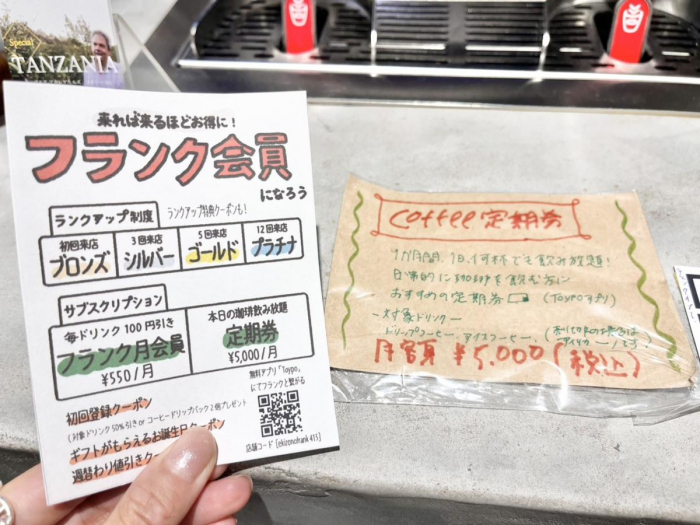 Special
TANZANIA
来れば来るほどお得に！
フランク会員
になろう
ランクアップ制度
ランクアップ特典クーポンも！
初回来店
ブロンズ
3回来店
シルバー
5回来店
ゴールド
12回来店
プラチナ
サブスクリプション
毎ドリンク100円引き
フランク月会員
¥550/月
本日の珈琲飲み放題
定期券
¥5,000/月
初回登録クーポン
(対象ドリンク50%引き or コーヒードリップパック2個プレゼント
ギフトがもらえるお誕生日クーポン
週替わり値引きク
無料アプリ「Toypo」
にてフランクと繋がる
店舗コード [ekizonohank413]
Coffee 定期券
1か月間、1日、何杯でも飲み放題！
日常的に珈琲を飲む方に
おすすめの定期券 (Toypoアプリ)
-対象ドリンク-
ドリップコーヒー・アイスコーヒー
月額 ¥5,000 (税込)